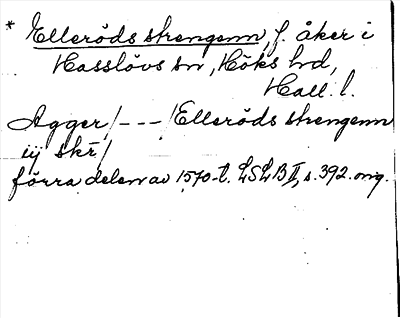 * Elleröds strengenn, f. åker i
Hasslövs sn, Höks hd,
Hall. l.
Agger /---/ Elleröds strengenn
iij skr̄ /
förra delen av 1570-t. LSLB II, s. 392. orig.